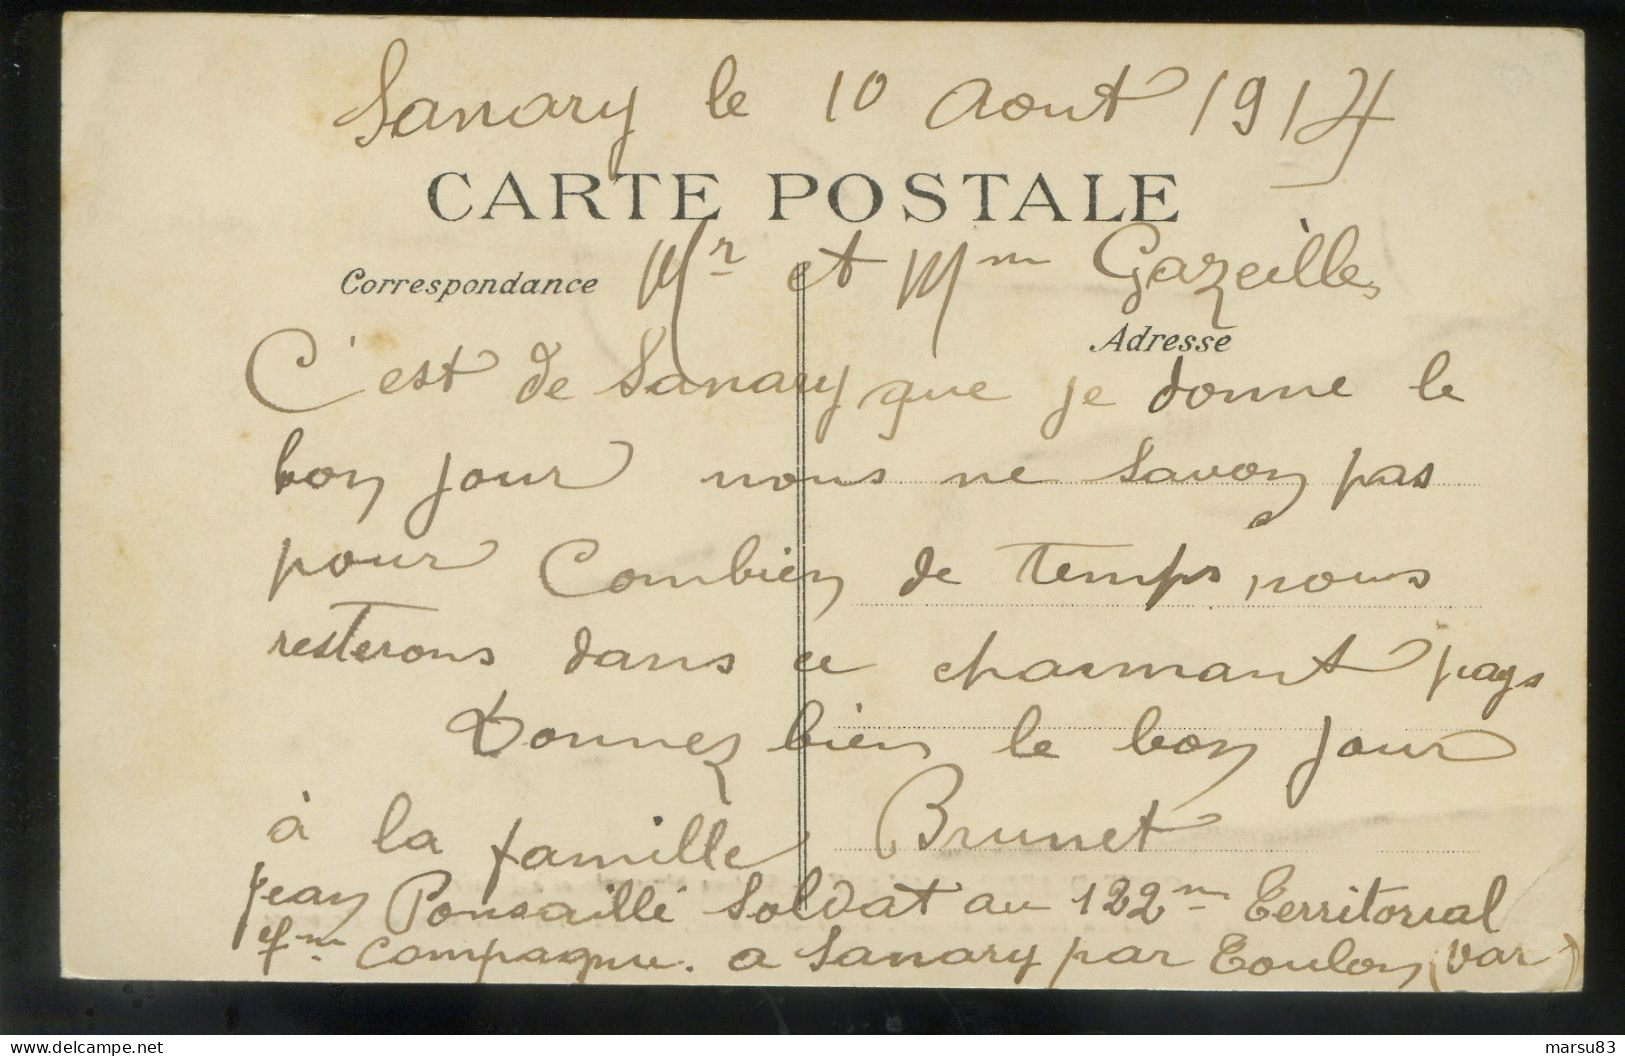 Sanary le 10 Aout 1914
CARTE POSTALE
Correspondance
Mr et Mm Gazeilles
Adresse
C'est de Sanary que je donne le
bon jour nous ne Savon pas
pour Combien de temps, nous
resterons dans ce charmant pays
Donnez bien le bon jour
à la famille Brunet
jean Soldat au 122me Territorial
compagnie. a Sanary par Toulon (var)
www.delcampe.net
marsu83